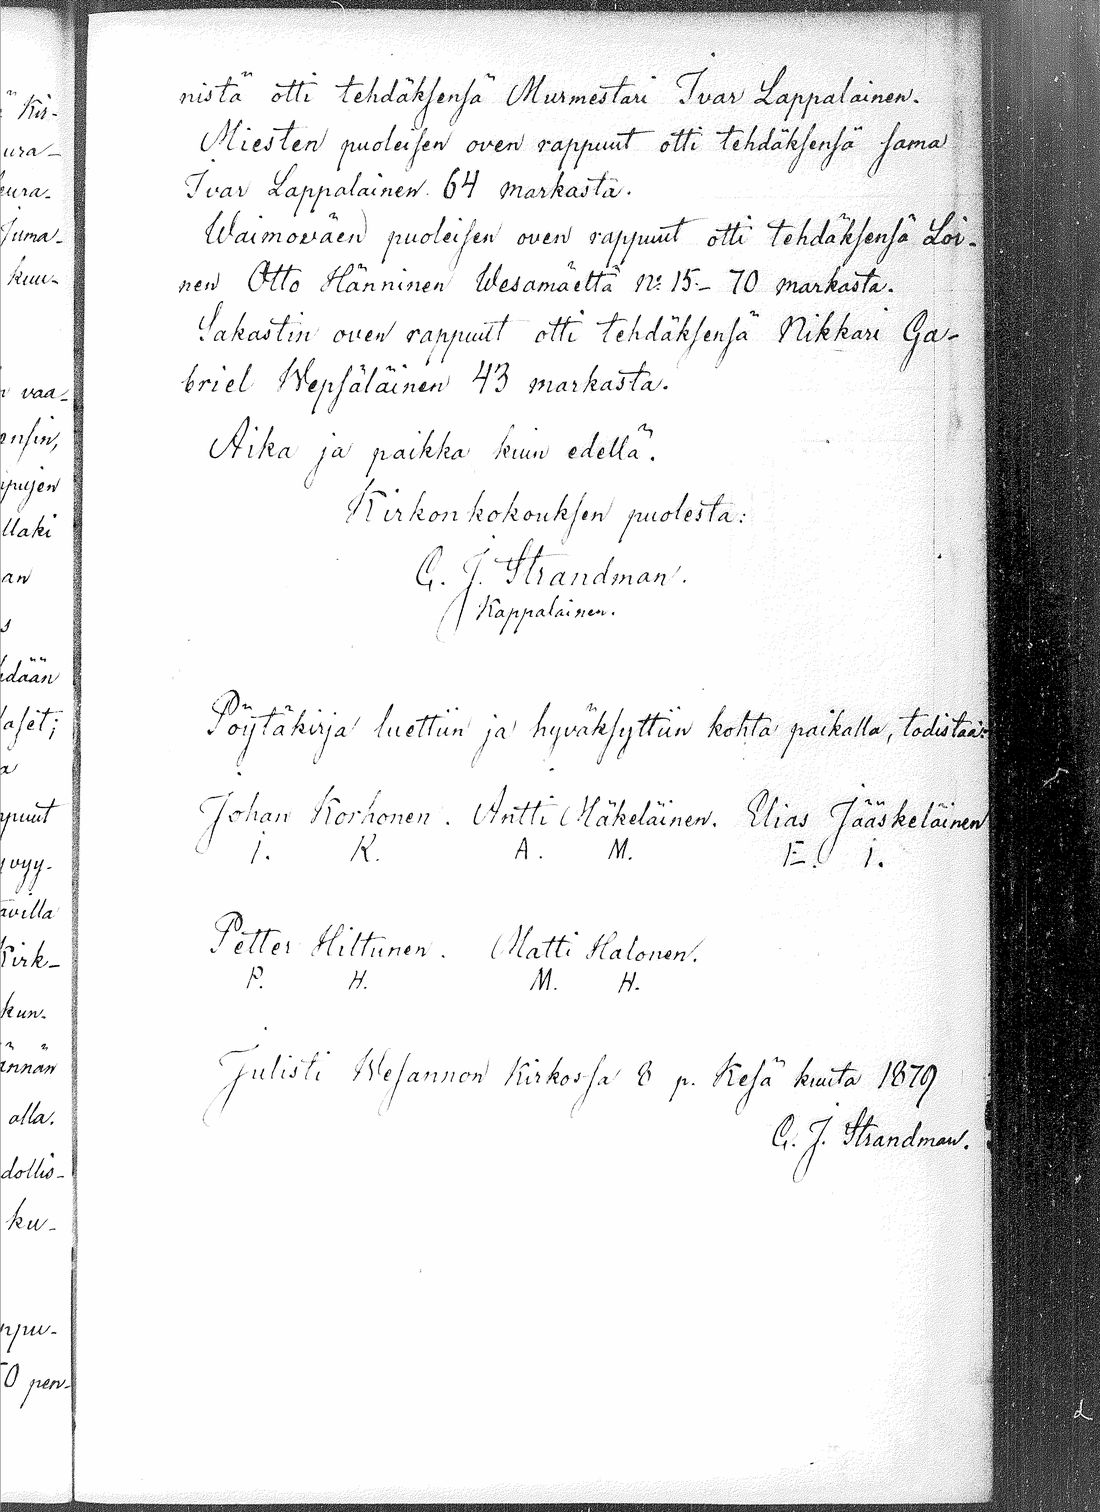 nistä otti tehdäksensä Murmestari Ivar Lappalainen.
Miesten puoleisen oven rappuut otti tehdäksensä sama
Ivar Lappalainen 64 markasta.
Waimoväen puoleisen oven rappuut otti tehdäksensä Loi-
nen Otto Hänninen Wesamäeltä No 15 - 70 markasta.
Sakastin oven rappuut otti tehdäksensä Nikkari Ga-
briel Wepsäläinen 43 markasta.
Aika ja paikka kuin edellä.
Kirkonkokouksen puolesta:
G. J. Strandman.
Kappalainen.
Pöytäkirja luettiin ja hyväksyttiin kohta paikalla, todistaa:
Johan Korhonen. Antti Mäkeläinen. Elias Jääskeläinen
J. K. A. M. E. J.
Petter Hiltunen. Matti Halonen.
P. H. M. H.
Julisti Wesannon Kirkossa 8 p. Kesä kuuta 1879
G. J. Strandman.
Kir-
ura-
eura-
Juma-
kuu-
vaa-
ensin,
ppujen
llaki
an
s
hdään
aset;
a
ppuut
yvyy-
ävilla
Kirk-
kun-
ännän
alla.
dollis-
ku-
ppu-
50 pen-